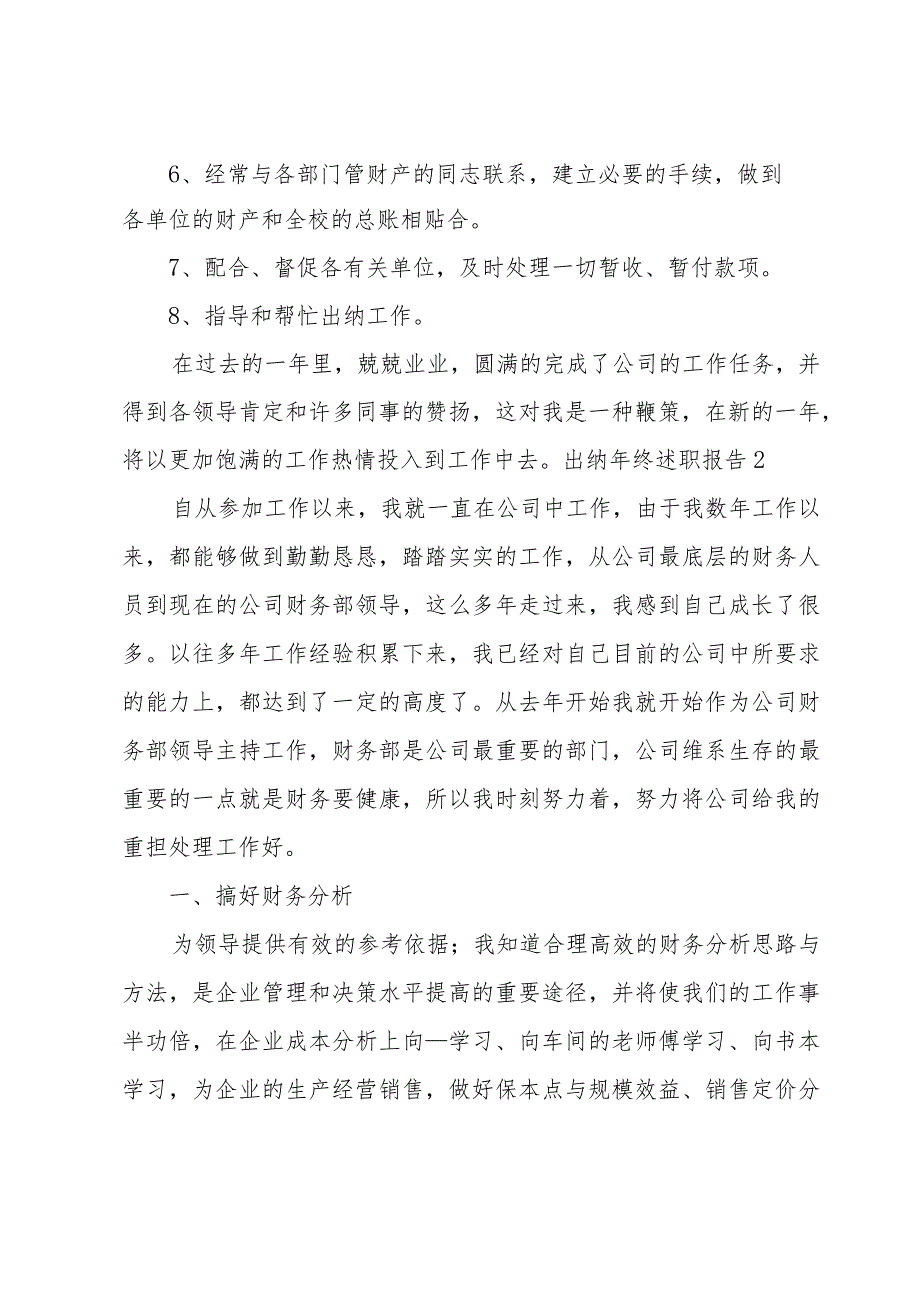 6、经常与各部门管财产的同志联系，建立必要的手续，做到
各单位的财产和全校的总账相贴合。
7、配合、督促各有关单位，及时处理一切暂收、暂付款项。
8、指导和帮忙出纳工作。
在过去的一年里，兢兢业业，圆满的完成了公司的工作任务，并
得到各领导肯定和许多同事的赞扬，这对我是一种鞭策，在新的一年，
将以更加饱满的工作热情投入到工作中去。出纳年终述职报告 2
自从参加工作以来，我就一直在公司中工作，由于我数年工作以
来，都能够做到勤勤恳恳，踏踏实实的工作，从公司最底层的财务人
员到现在的公司财务部领导，这么多年走过来，我感到自己成长了很
多。以往多年工作经验积累下来，我已经对自己目前的公司中所要求
的能力上，都达到了一定的高度了。从去年开始我就开始作为公司财
务部领导主持工作，财务部是公司最重要的部门，公司维系生存的最
重要的一点就是财务要健康，所以我时刻努力着，努力将公司给我的
重担处理工作好。
一、搞好财务分析
为领导提供有效的参考依据；我知道合理高效的财务分析思路与
方法，是企业管理和决策水平提高的重要途径，并将使我们的工作事
半功倍，在企业成本分析上向—学习、向车间的老师傅学习、向书本
学习，为企业的生产经营销售，做好保本点与规模效益、销售定价分